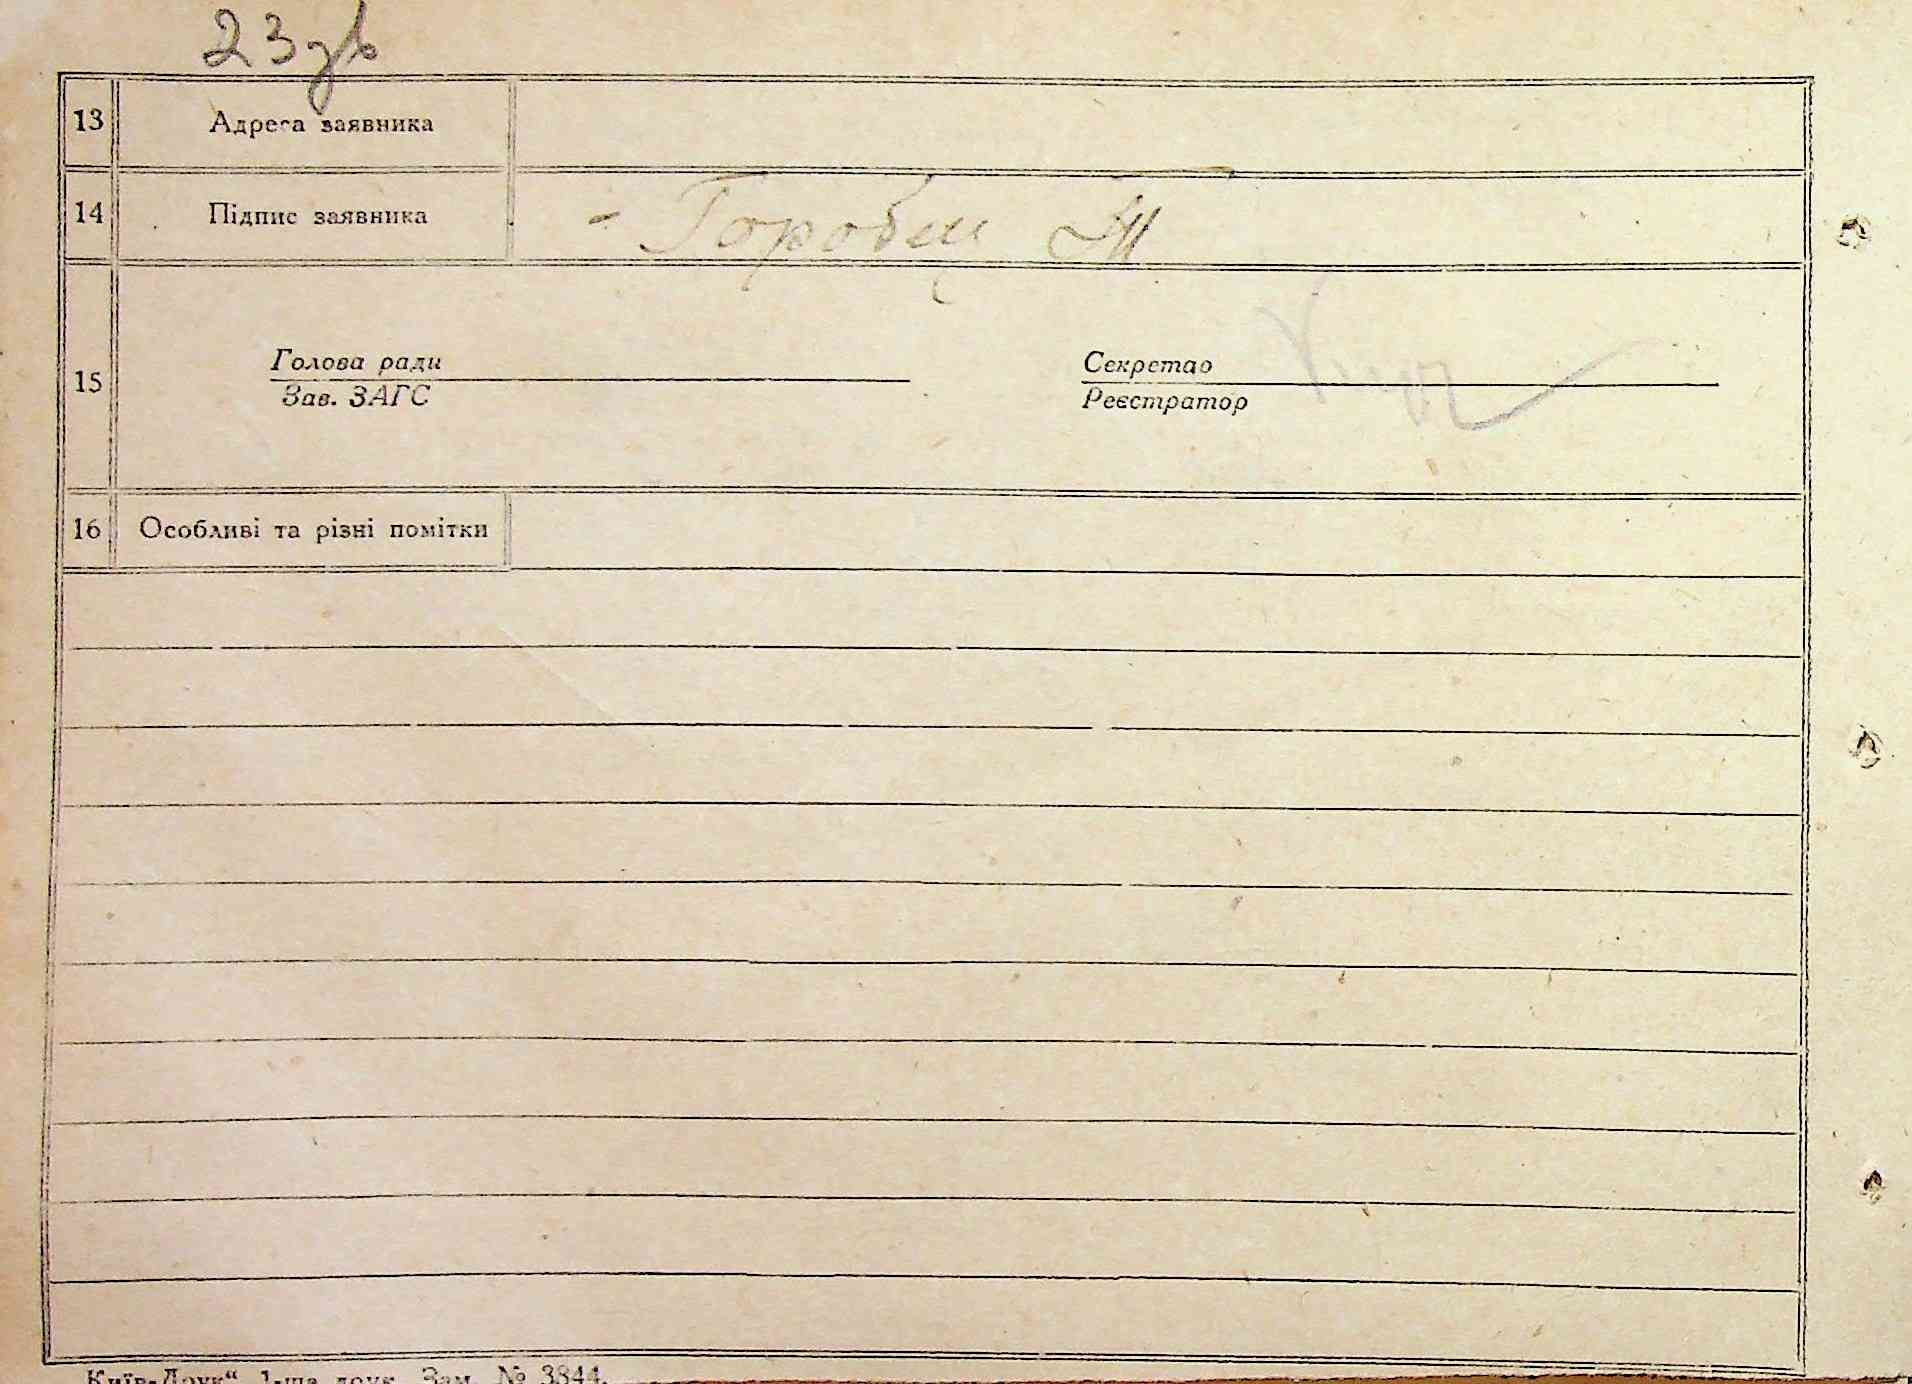 23 зв
13 Адреса заявника
14 Підпис заявника - Горобец
15 Голова ради Секретар
Зав. ЗАГС Реєстратор
16 Особливі та різні помітки
Київ-Друк“ 1-ша друк. Зам. № 3844.